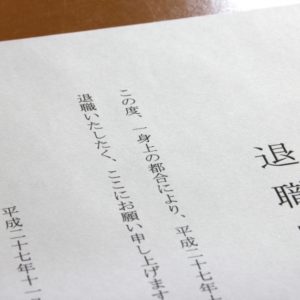 退職
この度、一身上の都合により、平成二十七年
退職いたしたく、ここにお願い申し上げます
平成二十七年十一